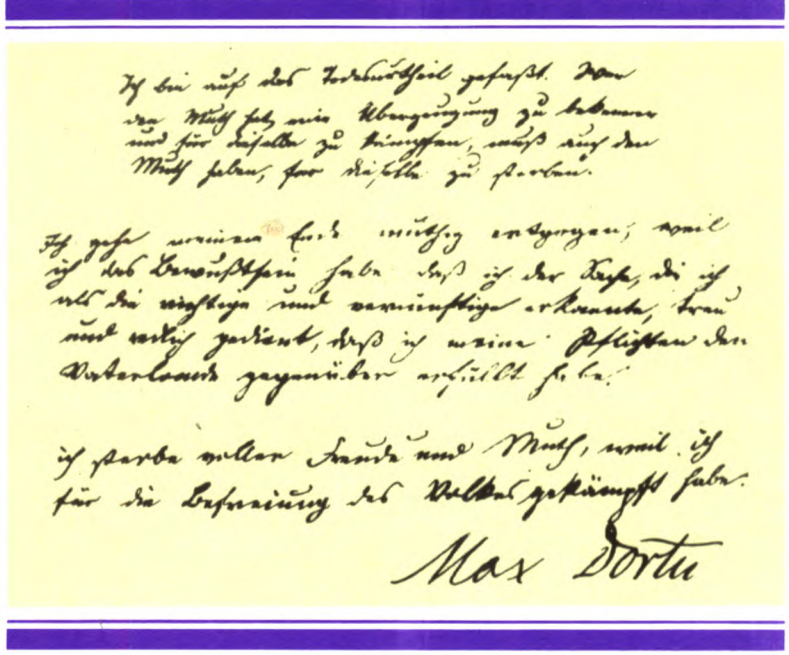 Ich bin auf das Todesurtheil gefaßt. Wer
den Muth hat, eine Überzeugung zu bekennen
und für dieselbe zu kämpfen, muß auch den
Muth haben, für dieselbe zu sterben.
Ich gehe meinem Ende muthig entgegen, weil
ich das Bewußtsein habe daß ich der Sache, die ich
als die richtige und vernünftige erkannte, treu
und redlich gedient, daß ich meine Pflichten dem
Vaterlande gegenüber erfüllt habe.
ich sterbe voller Freude und Muth, weil ich
für die Befreiung des Volkes gekämpft habe.
Max Dortu